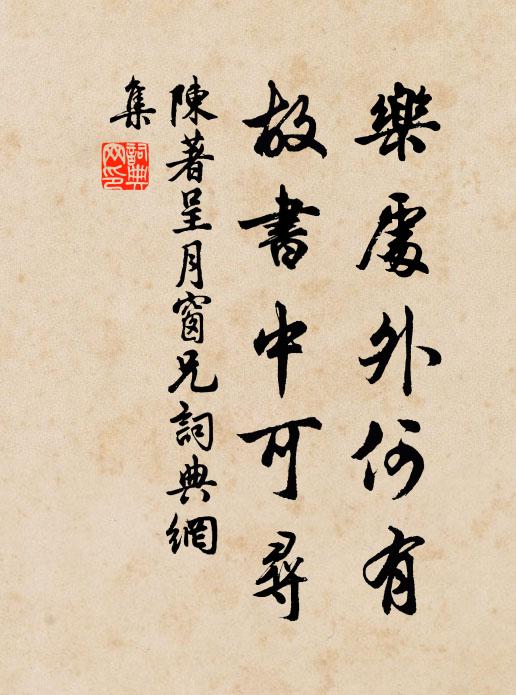 樂處外何有
故書中可尋
陳著呈月窗兄詞典網
集
詞典網印